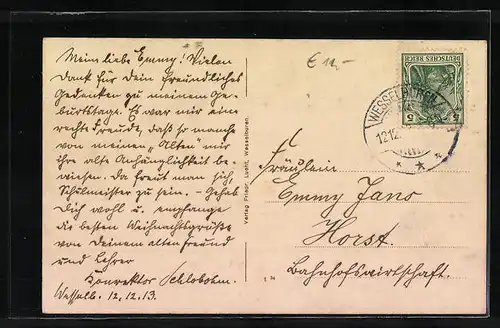 Mein liebe Emmy! Vielen
Dank für Dein freundliches
Gedenken zu meinem Ge-
burtstage. Es war mir eine
rechte Freude, daß so manche
von meinen „Alten" mir
ihre alte Anhänglichkeit be-
wiesen. Da freut man sich,
Schulmeister zu sein. – Gehab
Dich wohl u. empfange
die besten Weihnachtsgrüße
von Deinem alten Freund
und Lehrer
Konrektor Schlobohm.
Wesselb. 12.12.13.
Verlag Friedr. Lucht, Wesselburen.
€ 12,-
DEUTSCHES REICH
5 5
WESSELBUREN
12.12.
Fräulein
Emmy Jans
Horst.
Bahnhofswirtschaft.